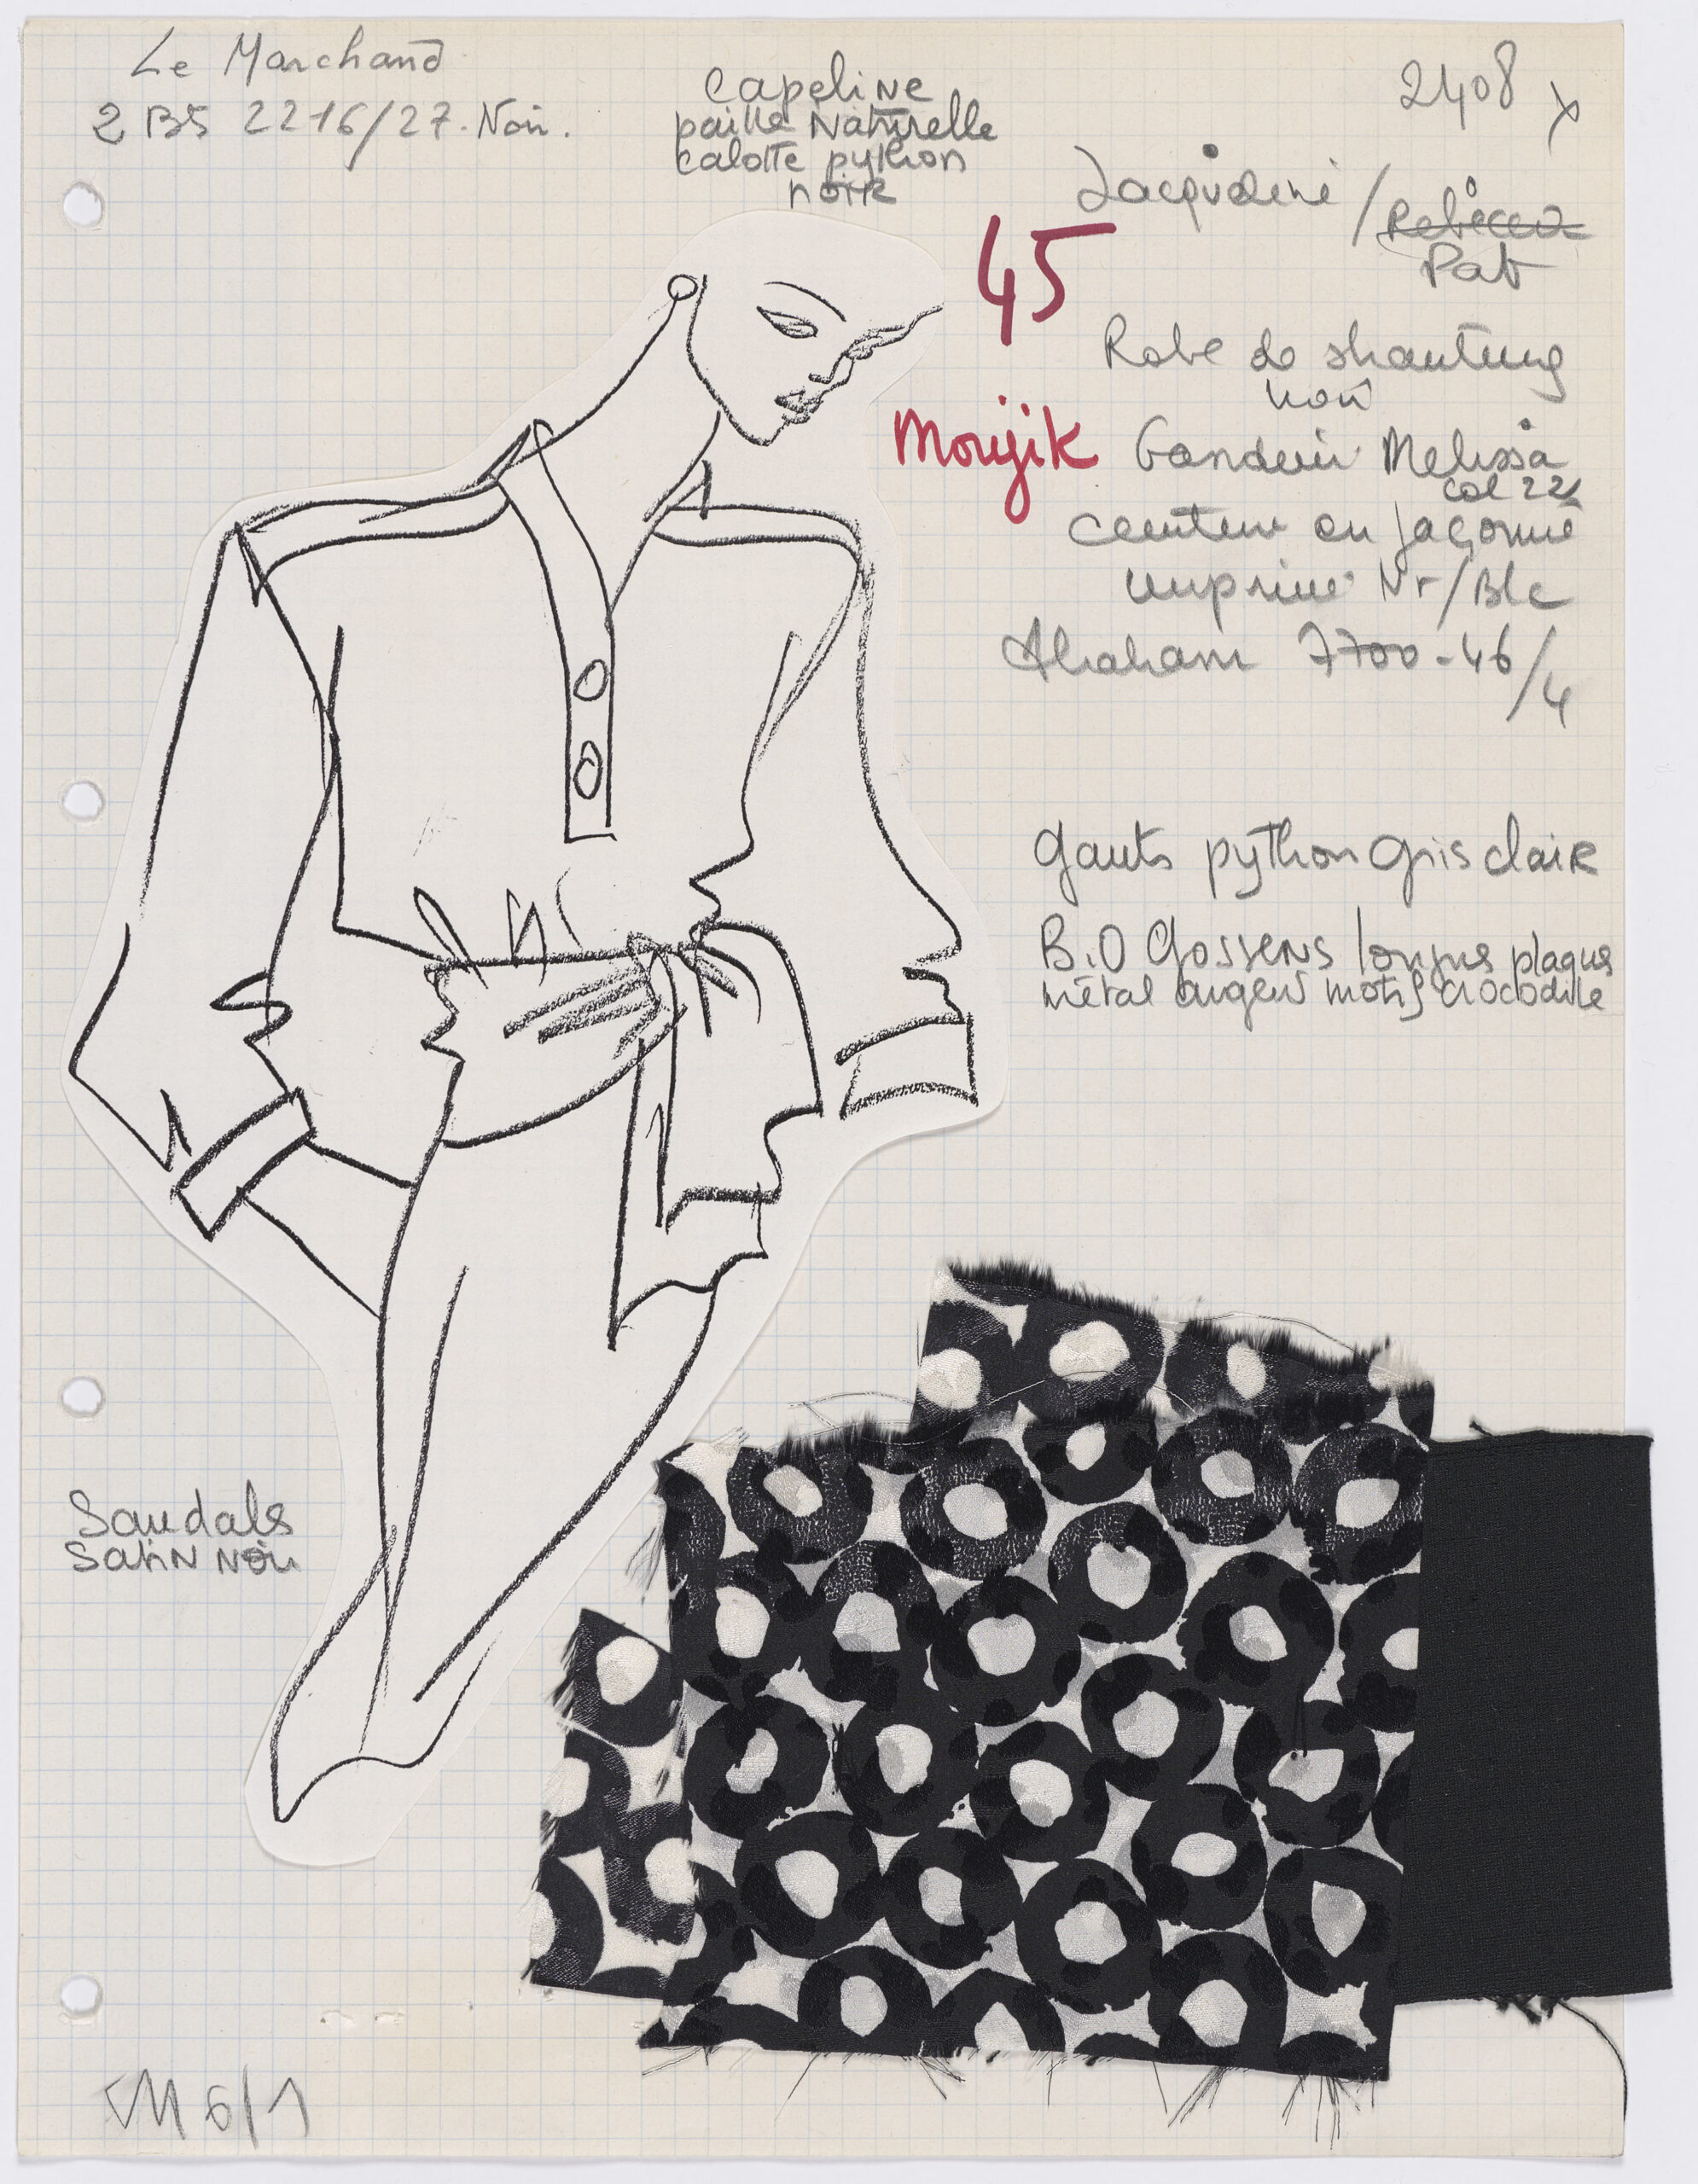 Le Marchand
2 B5 2216/27. Noir.
Capeline
paille Naturelle
calotte python
noire
2408 x
Jacqueline / Rebecca
Pat
45
Robe de shantung
noir
Moujik
Gandini Melissa
col 22
ceinture en façonné
imprimé Nr/Blc
Abraham 7700-46/4
Gants python Gris claiR
B.O GossENs longues plaques
métal argent motif crocodile
Sandals
SatiN Noir
M 6/1